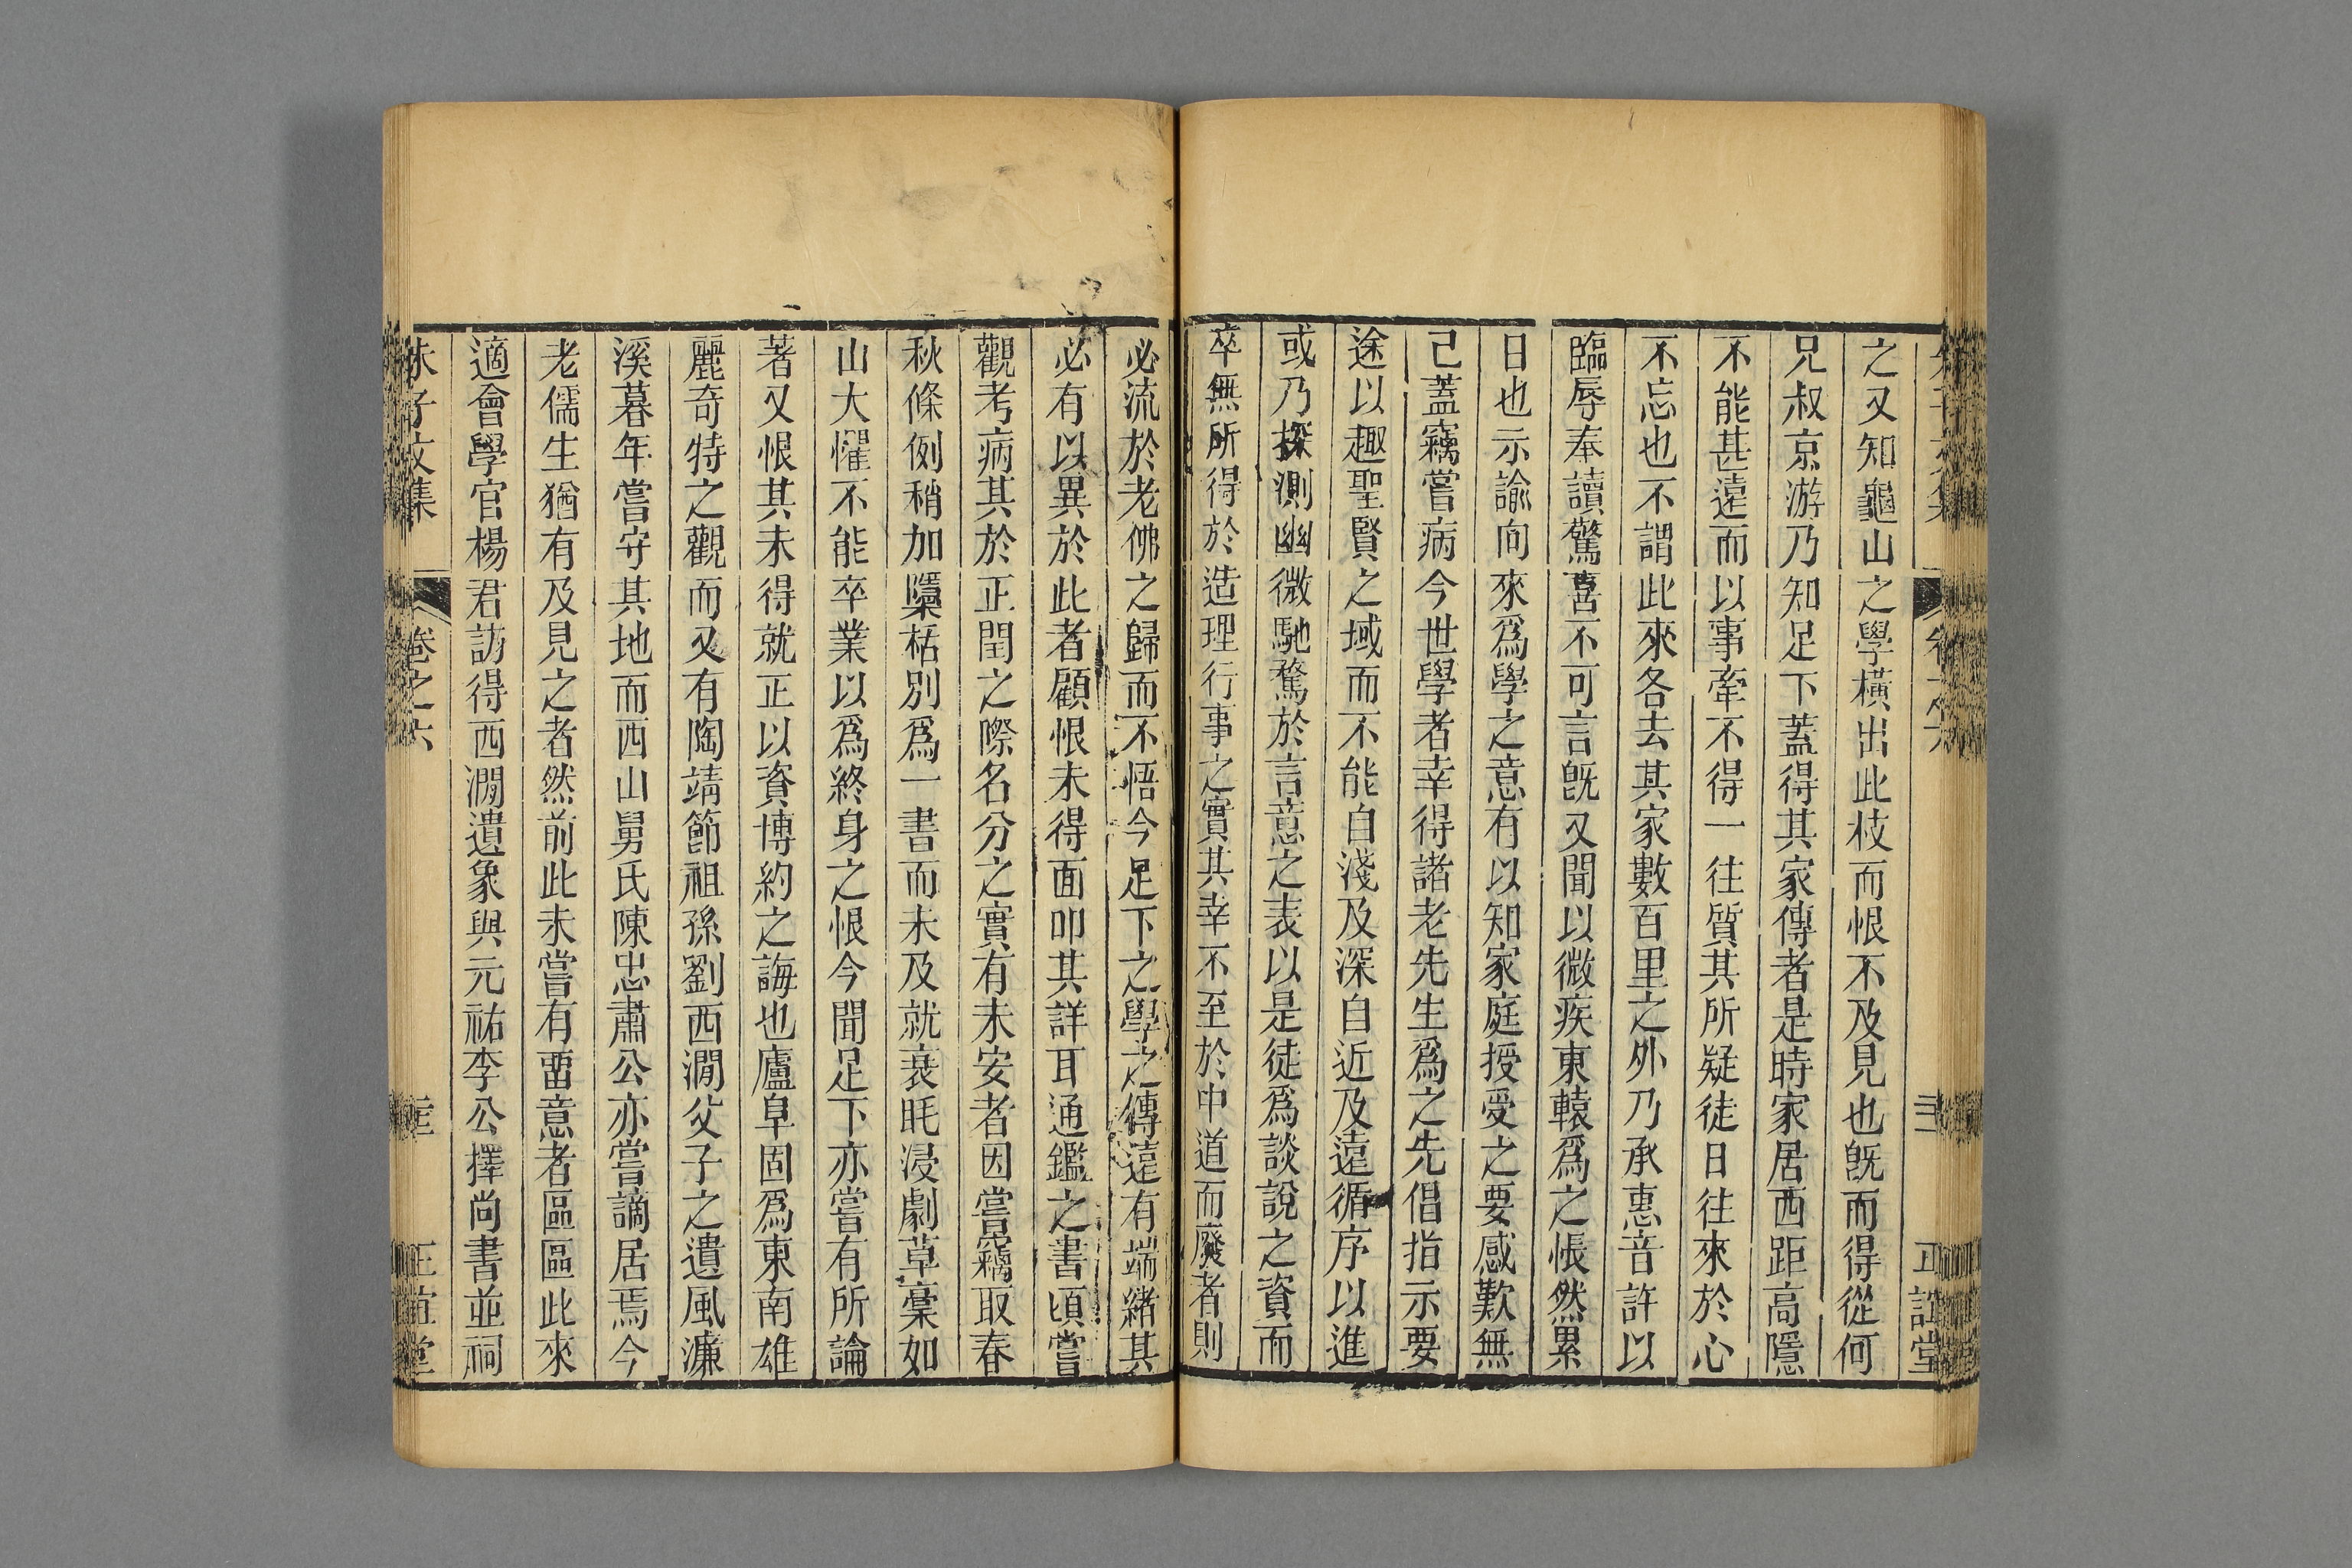 之又知龜山之學橫出此枝而恨不及見也旣而得從何
兄叔京游乃知足下蓋得其家傳者是時家居西距高隱
不能甚遠而以事牽不得一往質其所疑徒日往來於心
不忘也不謂此來各去其家數百里之外乃承惠音許以
臨辱奉讀驚喜不可言旣又聞以微疾東轅爲之悵然累
日也示諭向來爲學之意有以知家庭授受之要感歎無
已蓋竊嘗病今世學者幸得諸老先生爲之先倡指示要
途以趣聖賢之域而不能自淺及深自近及遠循序以進
或乃探測幽微馳騖於言意之表以是徒爲談說之資而
卒無所得於造理行事之實其幸不至於中道而廢者則
必流於老佛之歸而不悟今足下之學之傳遠有端緒其
必有以異於此者顧恨未得面叩其詳耳通鑑之書頃嘗
觀考病其於正閏之際名分之實有未安者因嘗竊取春
秋條例稍加檃栝別爲一書而未及就衰眊浸劇草稾如
山大懼不能卒業以爲終身之恨今聞足下亦嘗有所論
著又恨其未得就正以資博約之誨也廬阜固爲東南雄
麗奇特之觀而又有陶靖節祖孫劉西澗父子之遺風濂
溪暮年嘗守其地而西山舅氏陳忠肅公亦嘗謫居焉今
老儒生猶有及見之者然前此未嘗有畱意者區區此來
適會學官楊君訪得西澗遺象與元祐李公擇尚書並祠
朱子文集 卷之六 正誼堂